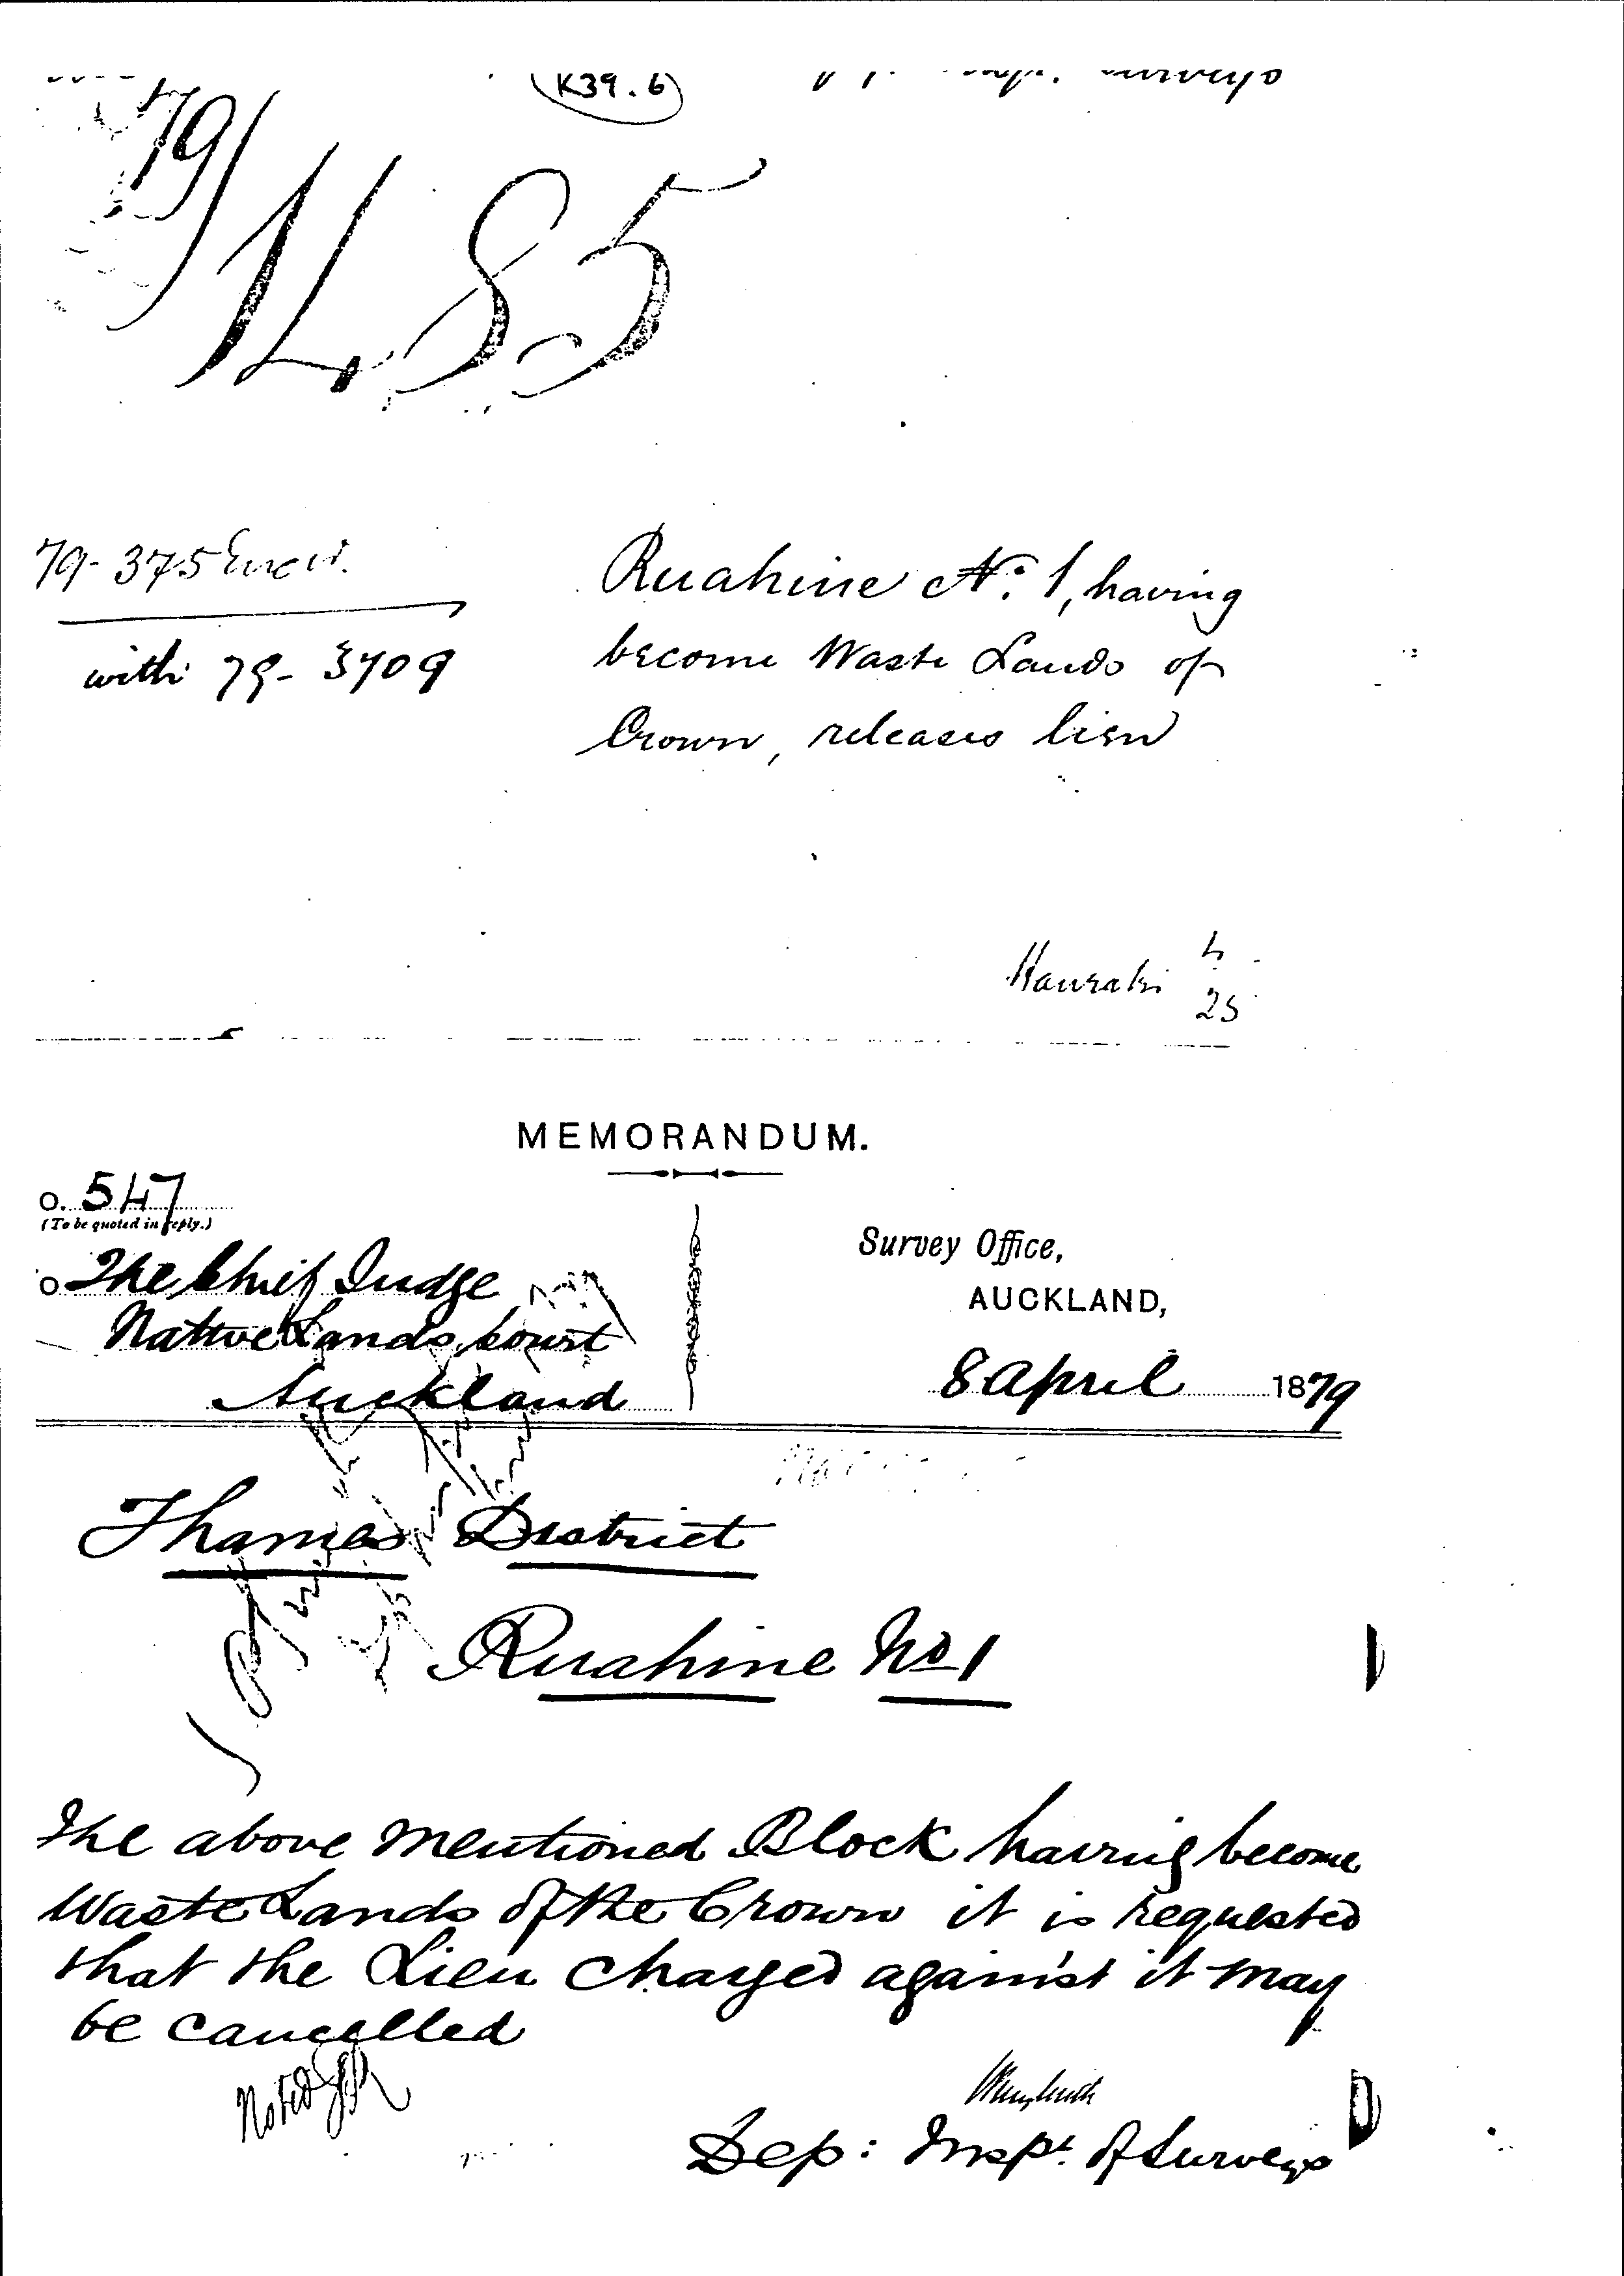 K39.6
79/1485
79-375
with 79-3709
Ruahine No. 1, having
become Waste Lands of
Crown, releases lien
Hauraki 4
25
MEMORANDUM.
o. 547
(To be quoted in reply.)
o The Chief Judge
Native Lands Court
Auckland
Survey Office,
AUCKLAND,
8 April 1879
Thames District
Ruahine No 1
The above mentioned Block having become
Waste Lands of the Crown it is requested
that the Lien charged against it may
be cancelled
Noted
Dep: Inspt. of Surveys